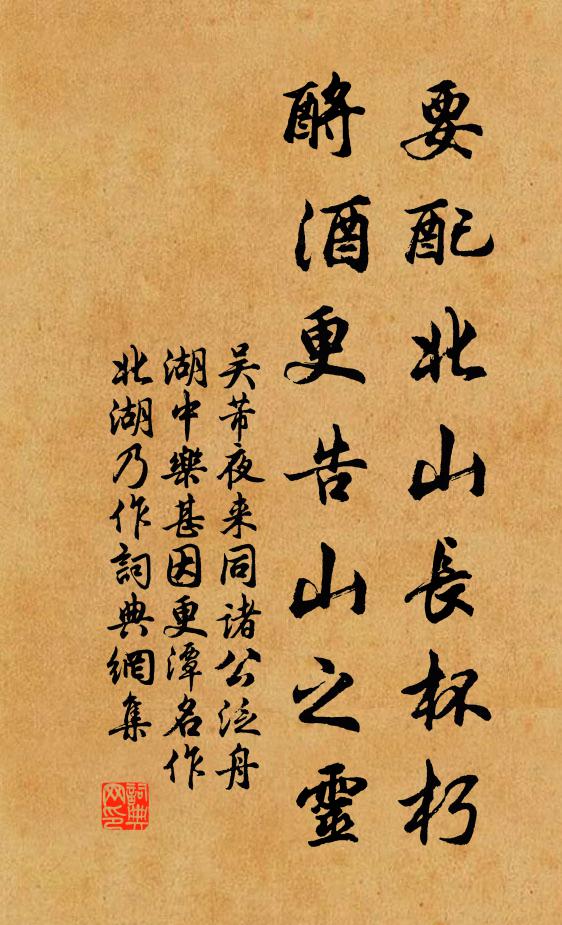 要配北山長杯朽
酹酒更告山之靈
吴芾夜来同诸公泛舟
湖中樂甚因更潭名作
北湖乃作詞典網集
詞典网印